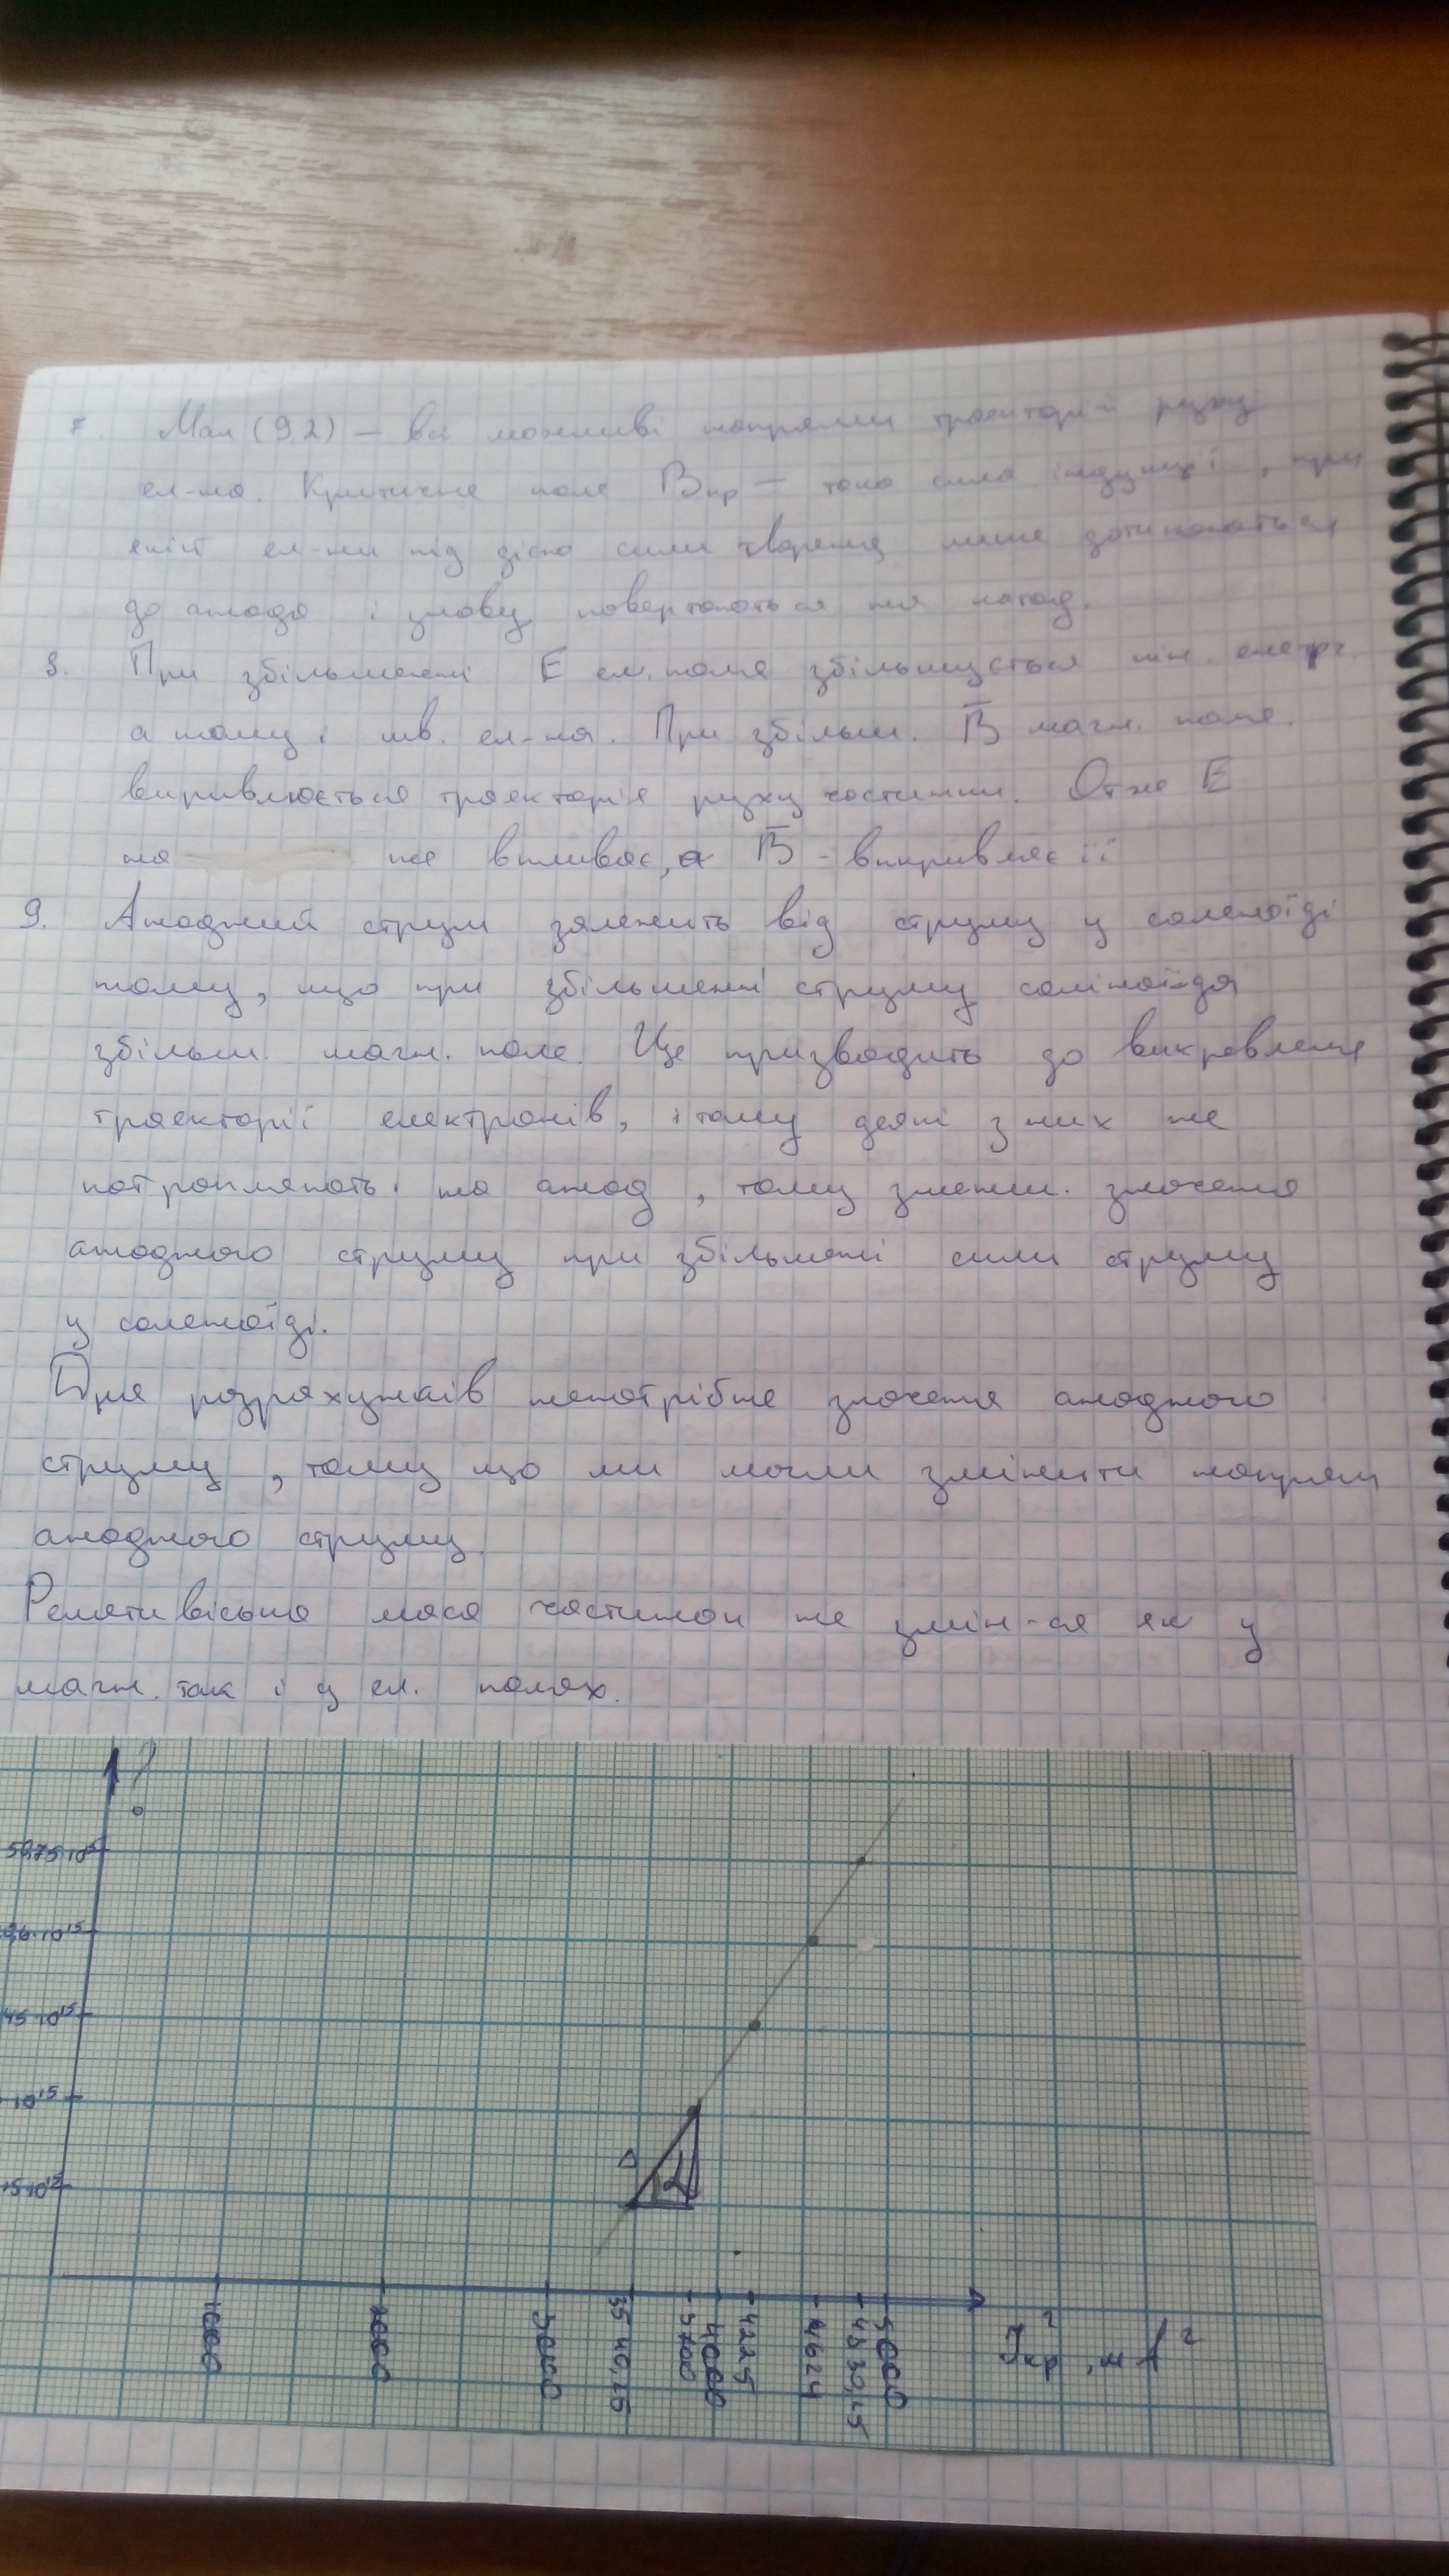 7. Мал (9.2) – всі можливі напрями траєкторій руху
ел-на. Критичне поле Bкр – така сила індукції, при
якій ел-ни під дією сили лише дотикаються
до анода і знову повертаються на катод.
8. При збільшенні E ел. поля збільшується кін. енерг.
а тому і шв. ел-на. При збільш. B магн. поле
викривлюється траєкторія руху частинки. Отже E
на не впливає, а B - викривляє її
9. Анодний струм залежить від струму у соленоїді
тому, що при збільшенні струму соліноїда
збільш. магн. поле. Це призводить до викревленя
траєкторії електронів, і тому деякі з них не
потрапляють на анод, тому зменш. значення
анодного струму при збільшені сили струму
у соленоїді.
Для розрахунків непотрібне значення анодного
струму, тому що ми могли змінити напрям
анодного струму.
Релятивіська маса частинок не змін-ся як у
магн. так і у ел. полях.
?
45·10¹⁵
10¹⁵
1000
2000
3000
3540,25
3700
4000
4225
4624
4830,25
5000
I²кр, мА²